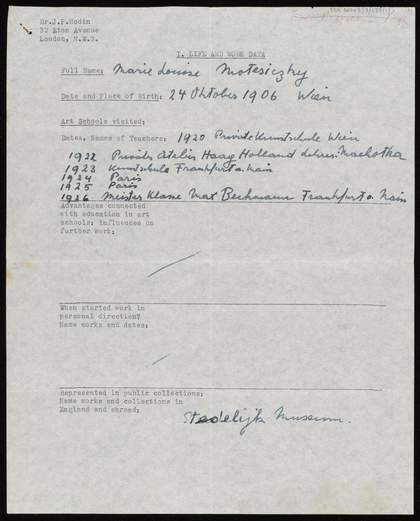 Dr.J.P.Hodin
32 Eton Avenue
London, N.W.3.
I. LIFE AND WORK DATA
Full Name: Marie Louise Motesiczky
Date and Place of Birth: 24 Oktober 1906 Wien
Art Schools visited:
Dates, Names of Teachers: 1920 Private Kunstschule Wien
1922 Privates Atelier Haag Holland Machotka
1923 Kunstschule Frankfurt a. Main
1924 Paris
1925 Paris
1926 Meister Klasse Max Beckmann Frankfurt a. Main
Advantages connected
with education in art
schools: Influences on
further work:
When started work in
personal direction?
Name works and dates:
Represented in public collections:
Name works and collections in
England and abroad:
Stedelijk Museum.